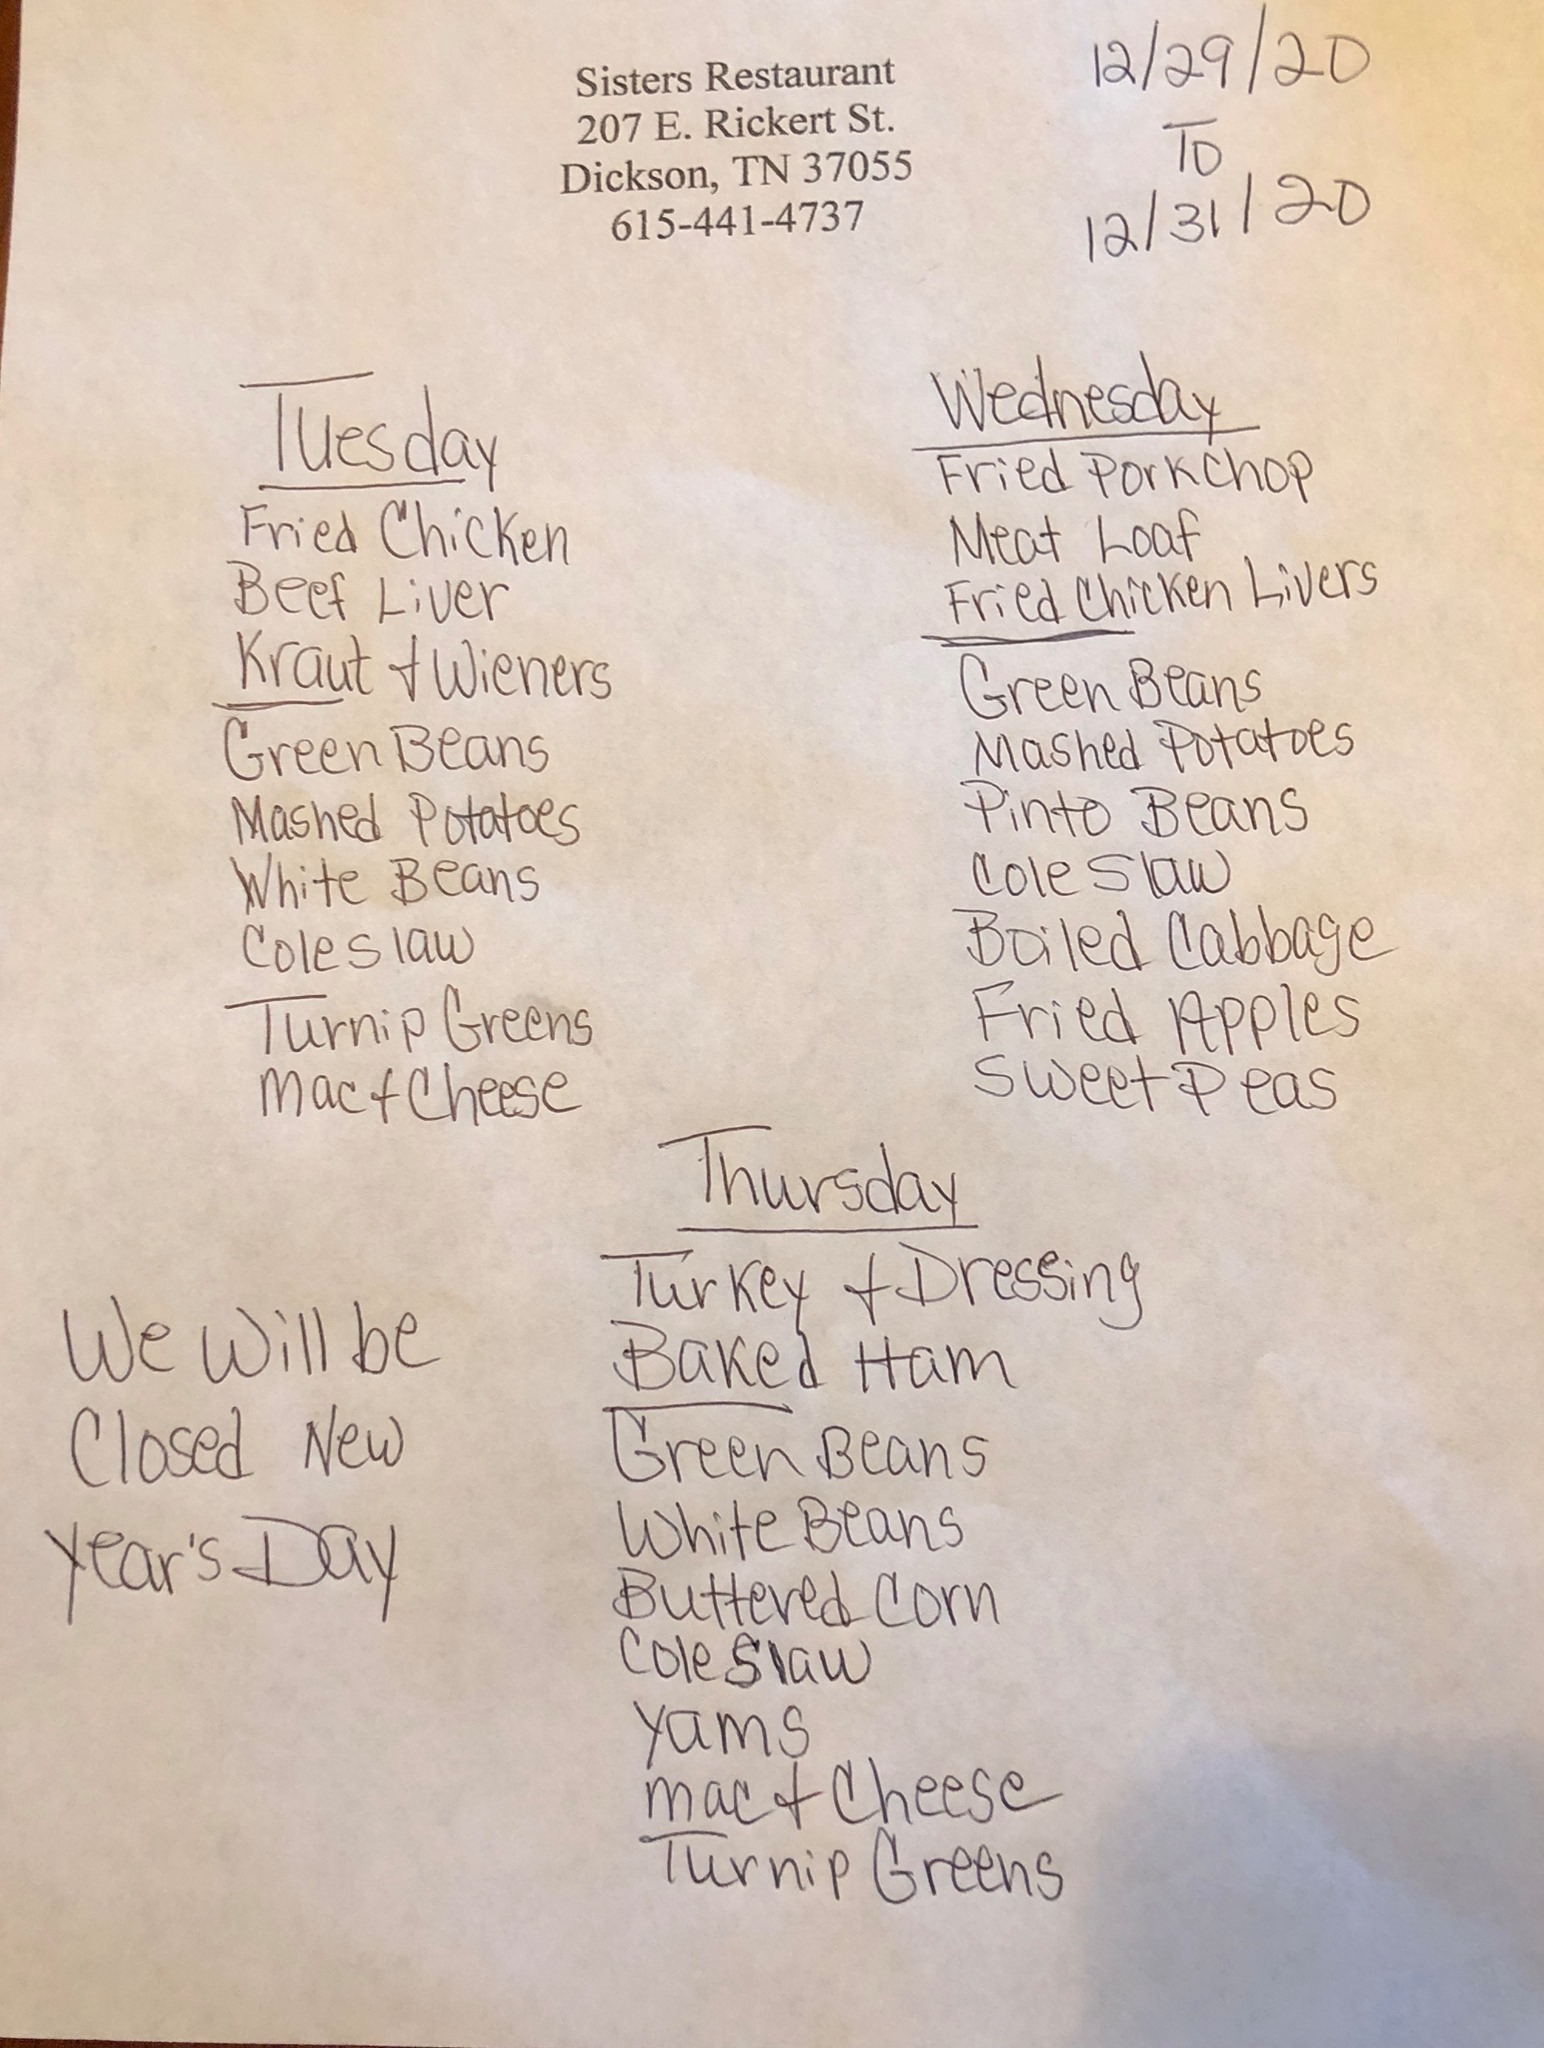 Sisters Restaurant
207 E. Rickert St.
Dickson, TN 37055
615-441-4737
12/29/20
To
12/31/20
Tuesday
Fried Chicken
Beef Liver
Kraut & Wieners
Green Beans
Mashed Potatoes
White Beans
Coleslaw
Turnip Greens
Mac & Cheese
Wednesday
Fried Porkchop
Meat Loaf
Fried Chicken Livers
Green Beans
Mashed Potatoes
Pinto Beans
Cole Slaw
Boiled Cabbage
Fried Apples
Sweet Peas
Thursday
Turkey & Dressing
Baked Ham
Green Beans
White Beans
Buttered Corn
Cole Slaw
Yams
Mac & Cheese
Turnip Greens
We Will be
Closed New
Year's Day